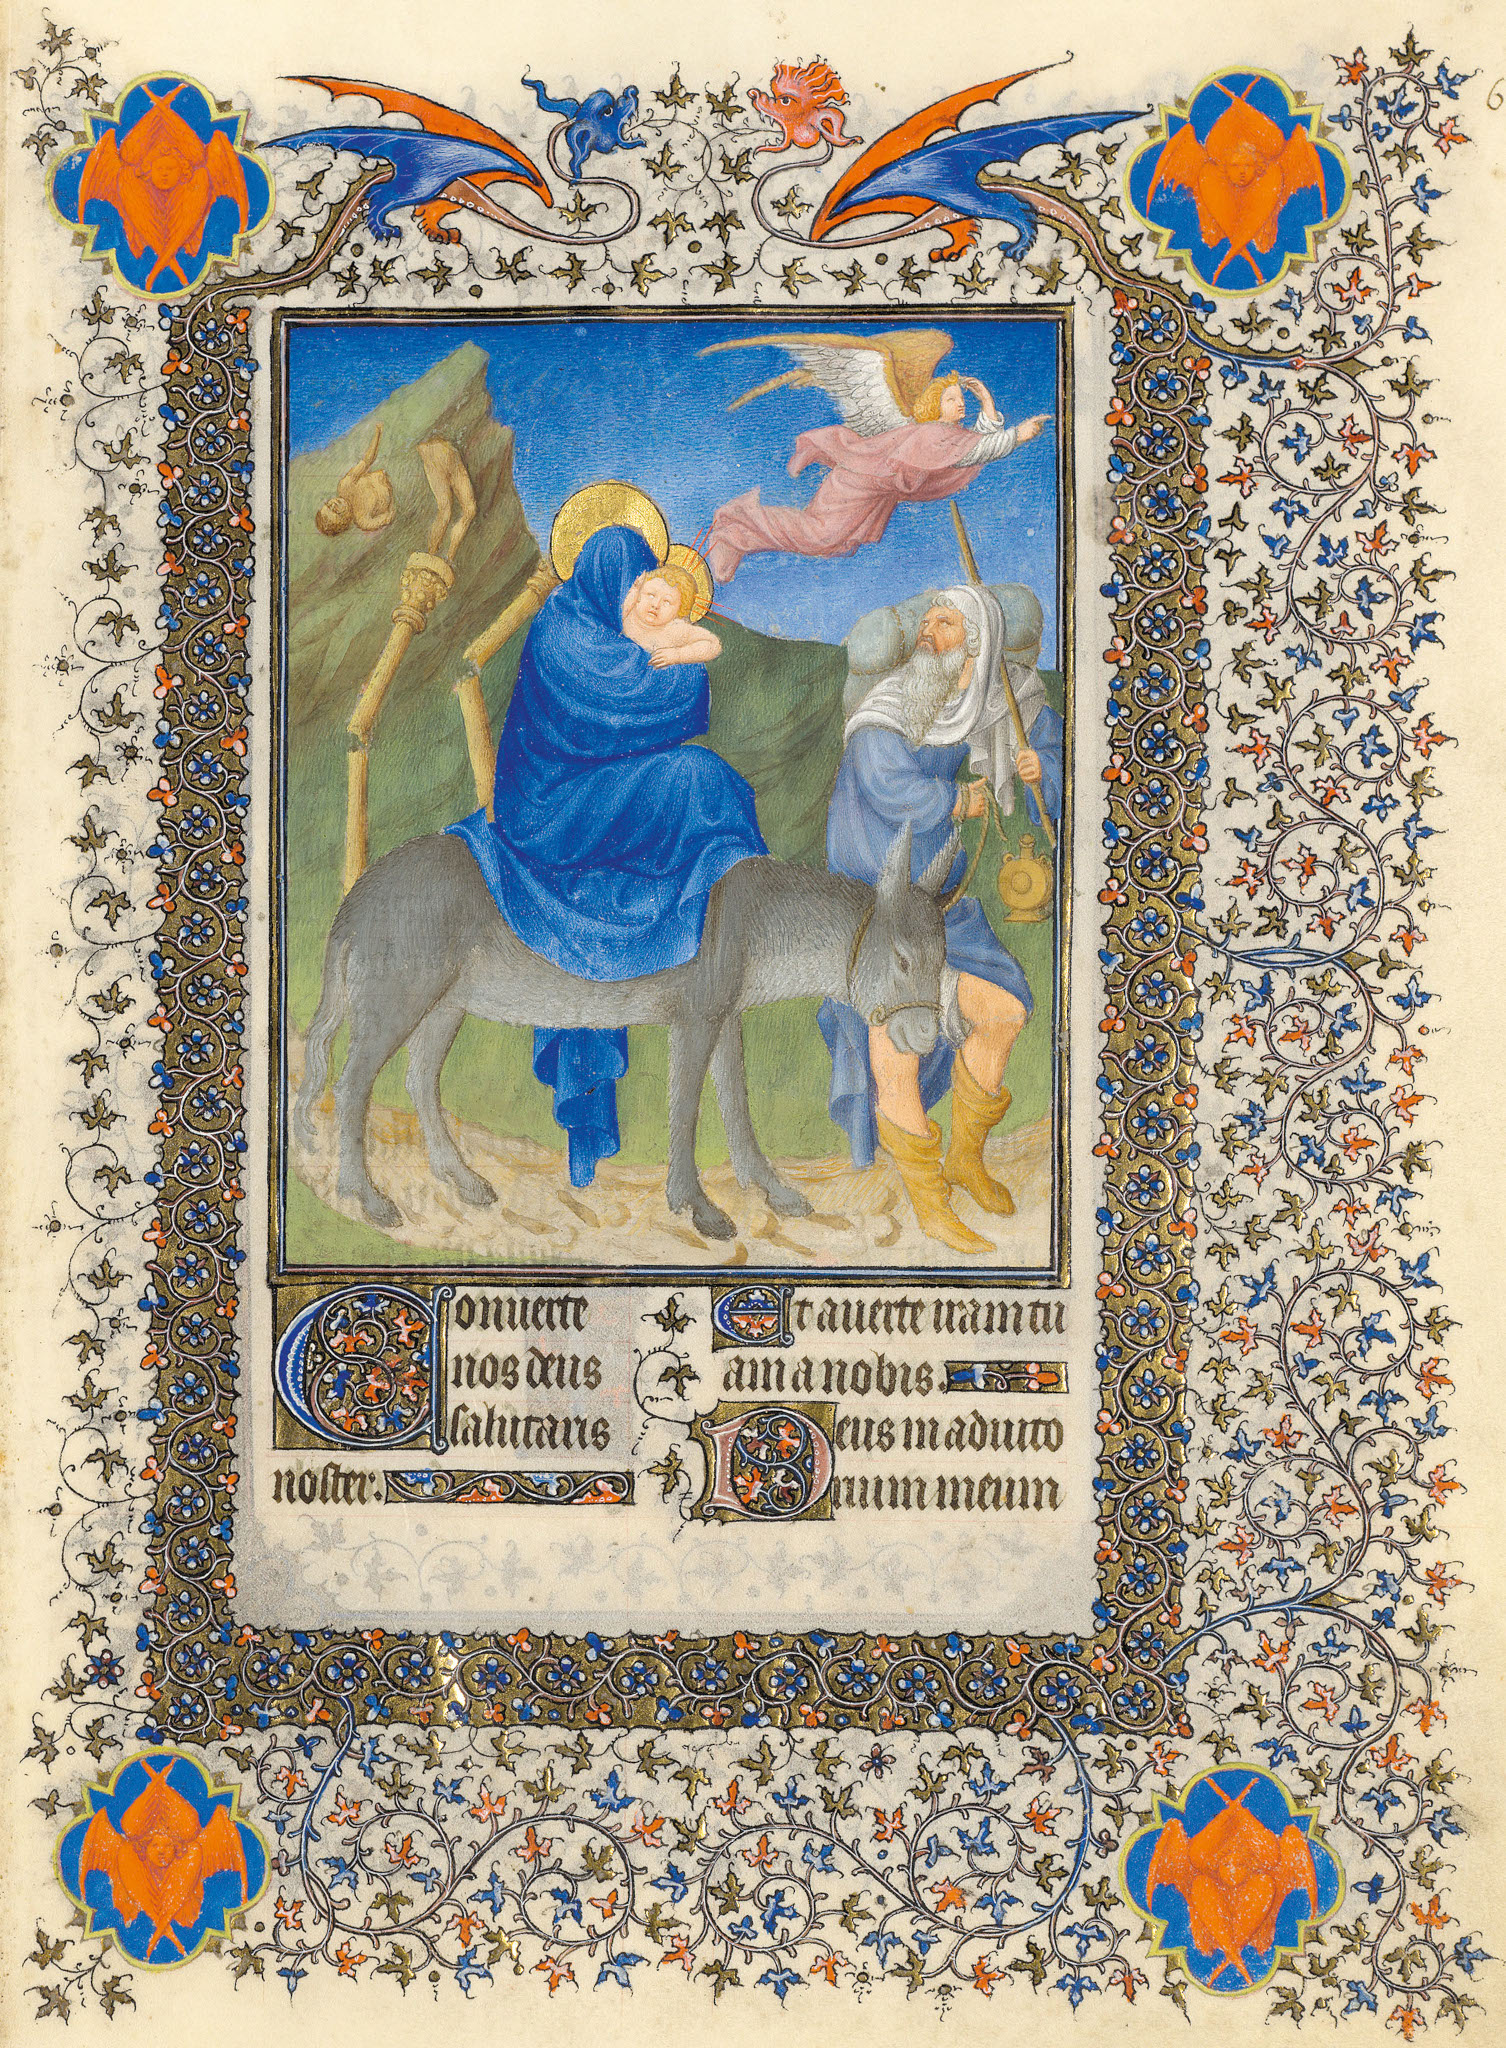 Conuerte
nos deus
salutaris
noster:
Et auerte iram tu
am a nobis.
Deus in adiuto
rium meum
6